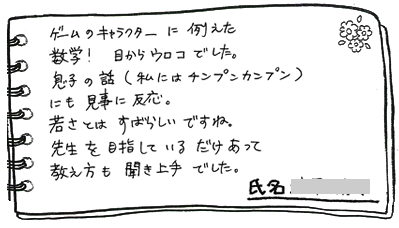 ゲームのキャラクターに例えた
数学！ 目からウロコでした。
息子の話（私にはチンプンカンプン）
にも見事に反応。
若さとはすばらしいですね。
先生を目指しているだけあって
教え方も聞き上手でした。
氏名